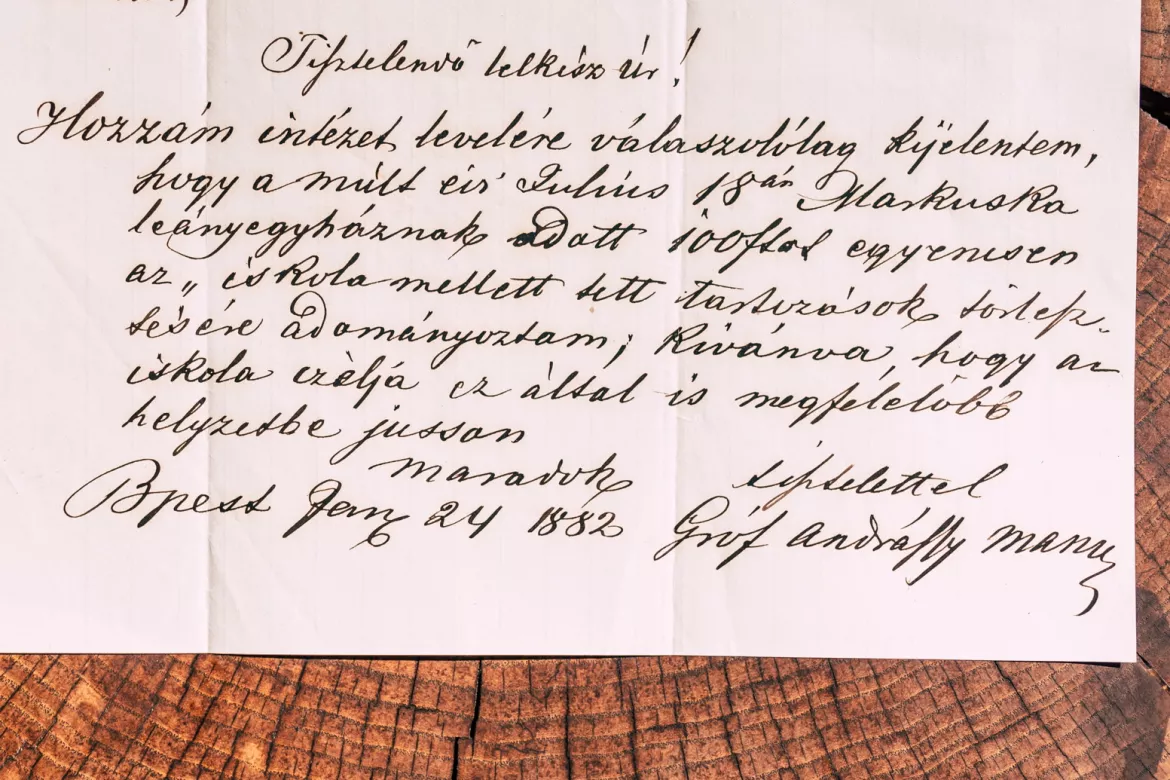 Tisztelendő lelkész Úr!
Hozzám intézet levelére válaszolólag kijelentem,
hogy a múlt évi Július 18án Markuska
leányegyháznak adott 100ftot egyenesen
az „iskola mellett tett tartozások törlesz-
tésére adományoztam; kivánva, hogy az
iskola czélja ez által is megfelelőbb
helyzetbe jusson
maradok tisztelettel
Bpest Jan 24 1882 Gróf Andrássy Manu